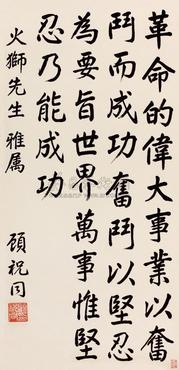 革命的偉大事業以奮
鬥而成功奮鬥以堅忍
為要旨世界萬事惟堅
忍乃能成功
火獅先生 雅属
顧祝同